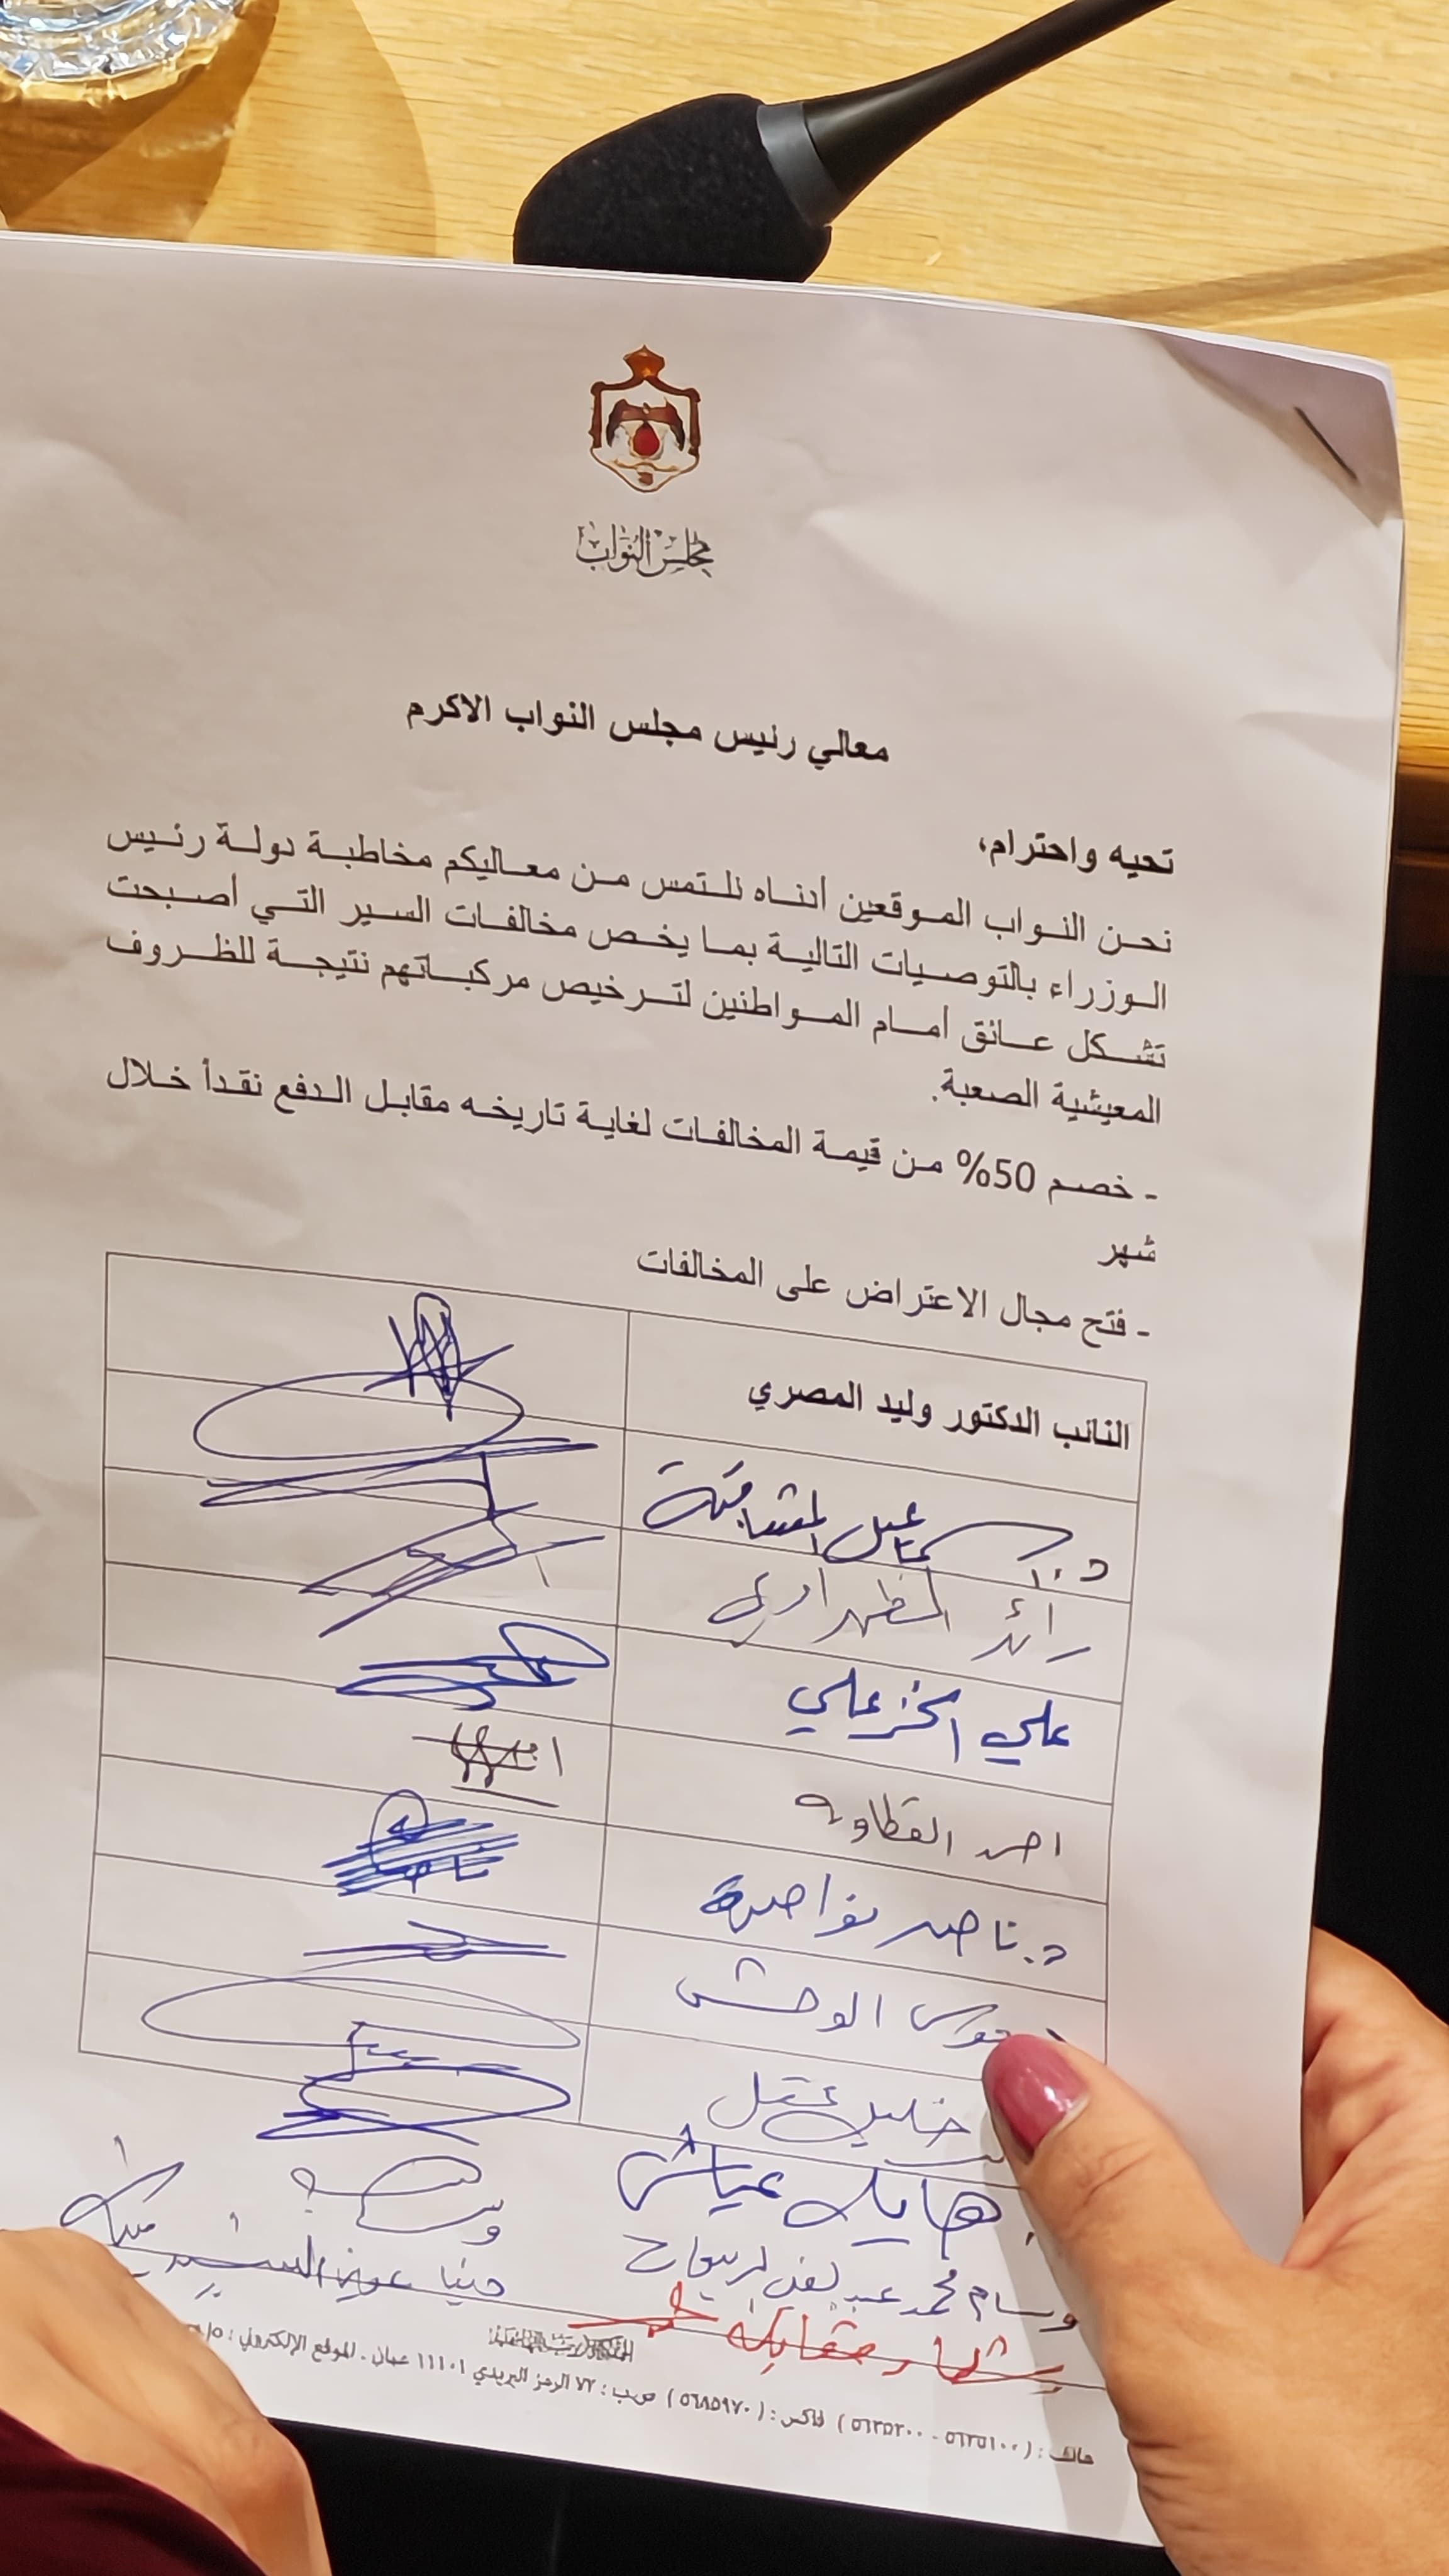 مجلس النواب
معالي رئيس مجلس النواب الاكرم
تحيه واحترام،
نحن النواب الموقعين أدناه نلتمس من معاليكم مخاطبة دولة رئيس
الوزراء بالتوصيات التالية بما يخص مخالفات السير التي أصبحت
تشكل عائق أمام المواطنين لترخيص مركباتهم نتيجة للظروف
المعيشية الصعبة.
- خصم 50% من قيمة المخالفات لغاية تاريخه مقابل الدفع نقدأ خلال
شهر
- فتح مجال الاعتراض على المخالفات
النائب الدكتور وليد المصري
المشاقبة
رائد الظهراوي
علي الخزعلي
احمد القطاونه
د. ناصر نواصره
الوحش
عياش
وسام محمد
هاتف : (٥٦٣٥١٠٠ - ٥٦٣٥٢٠٠) فاكس : (٥٦٨٥٩٧٠) ص.ب : ٧٢ الرمز البريدي ١١١٠١ عمان - الموقع الإلكتروني :